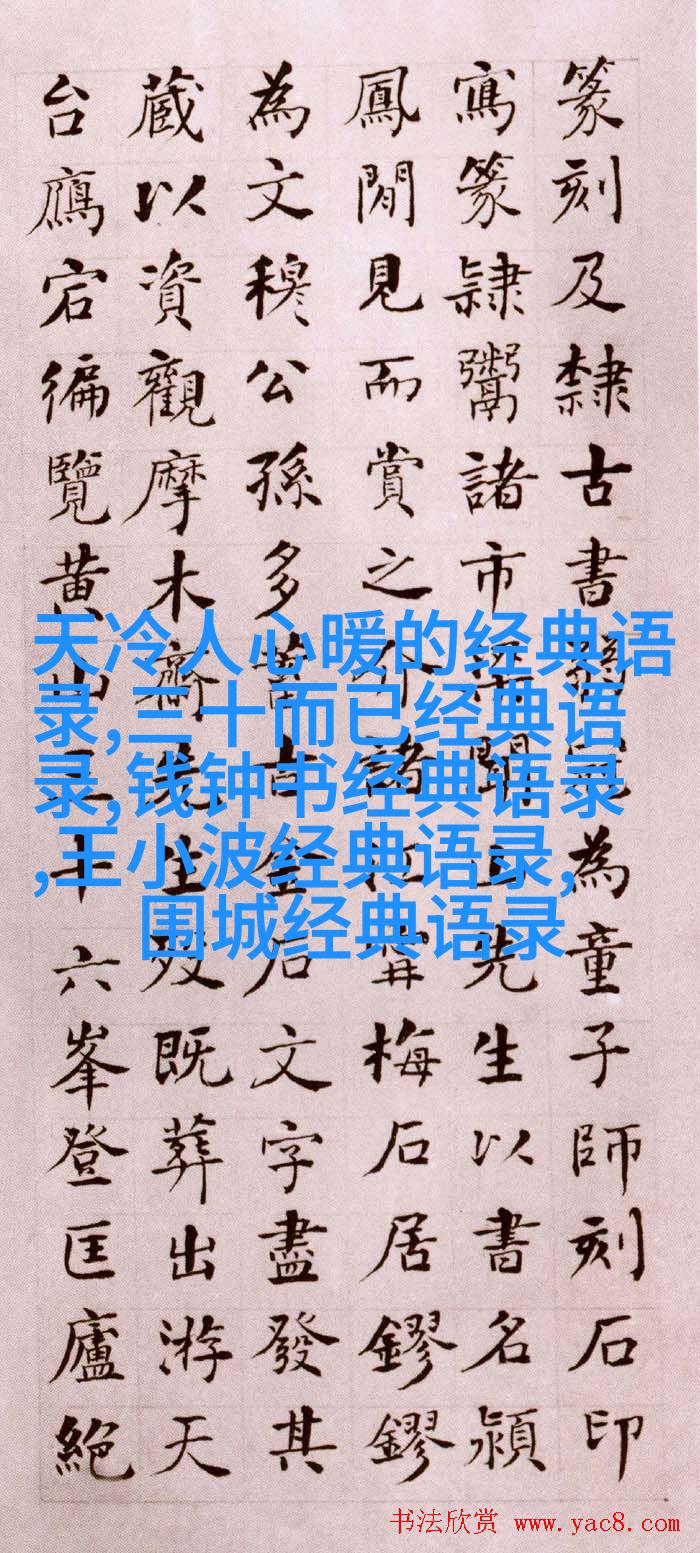 篆刻及隸古書為童子師刻石印
寫篆隸鬻諸市梁聞山先生以書名潁
鳳閒見而賞之介諸江寧梅石居鏐鏐
為文穆公孫多蓄古金石文字盡發其
藏以資觀摩木齋先生歿既葬出游天
台鴈宕徧覽黄山三十六峯登匡廬絕
天冷人心暖的经典语
录,三十而已经典语
录,钱钟书经典语录
,王小波经典语录,
围城经典语录
书法欣赏 www.yac8.com